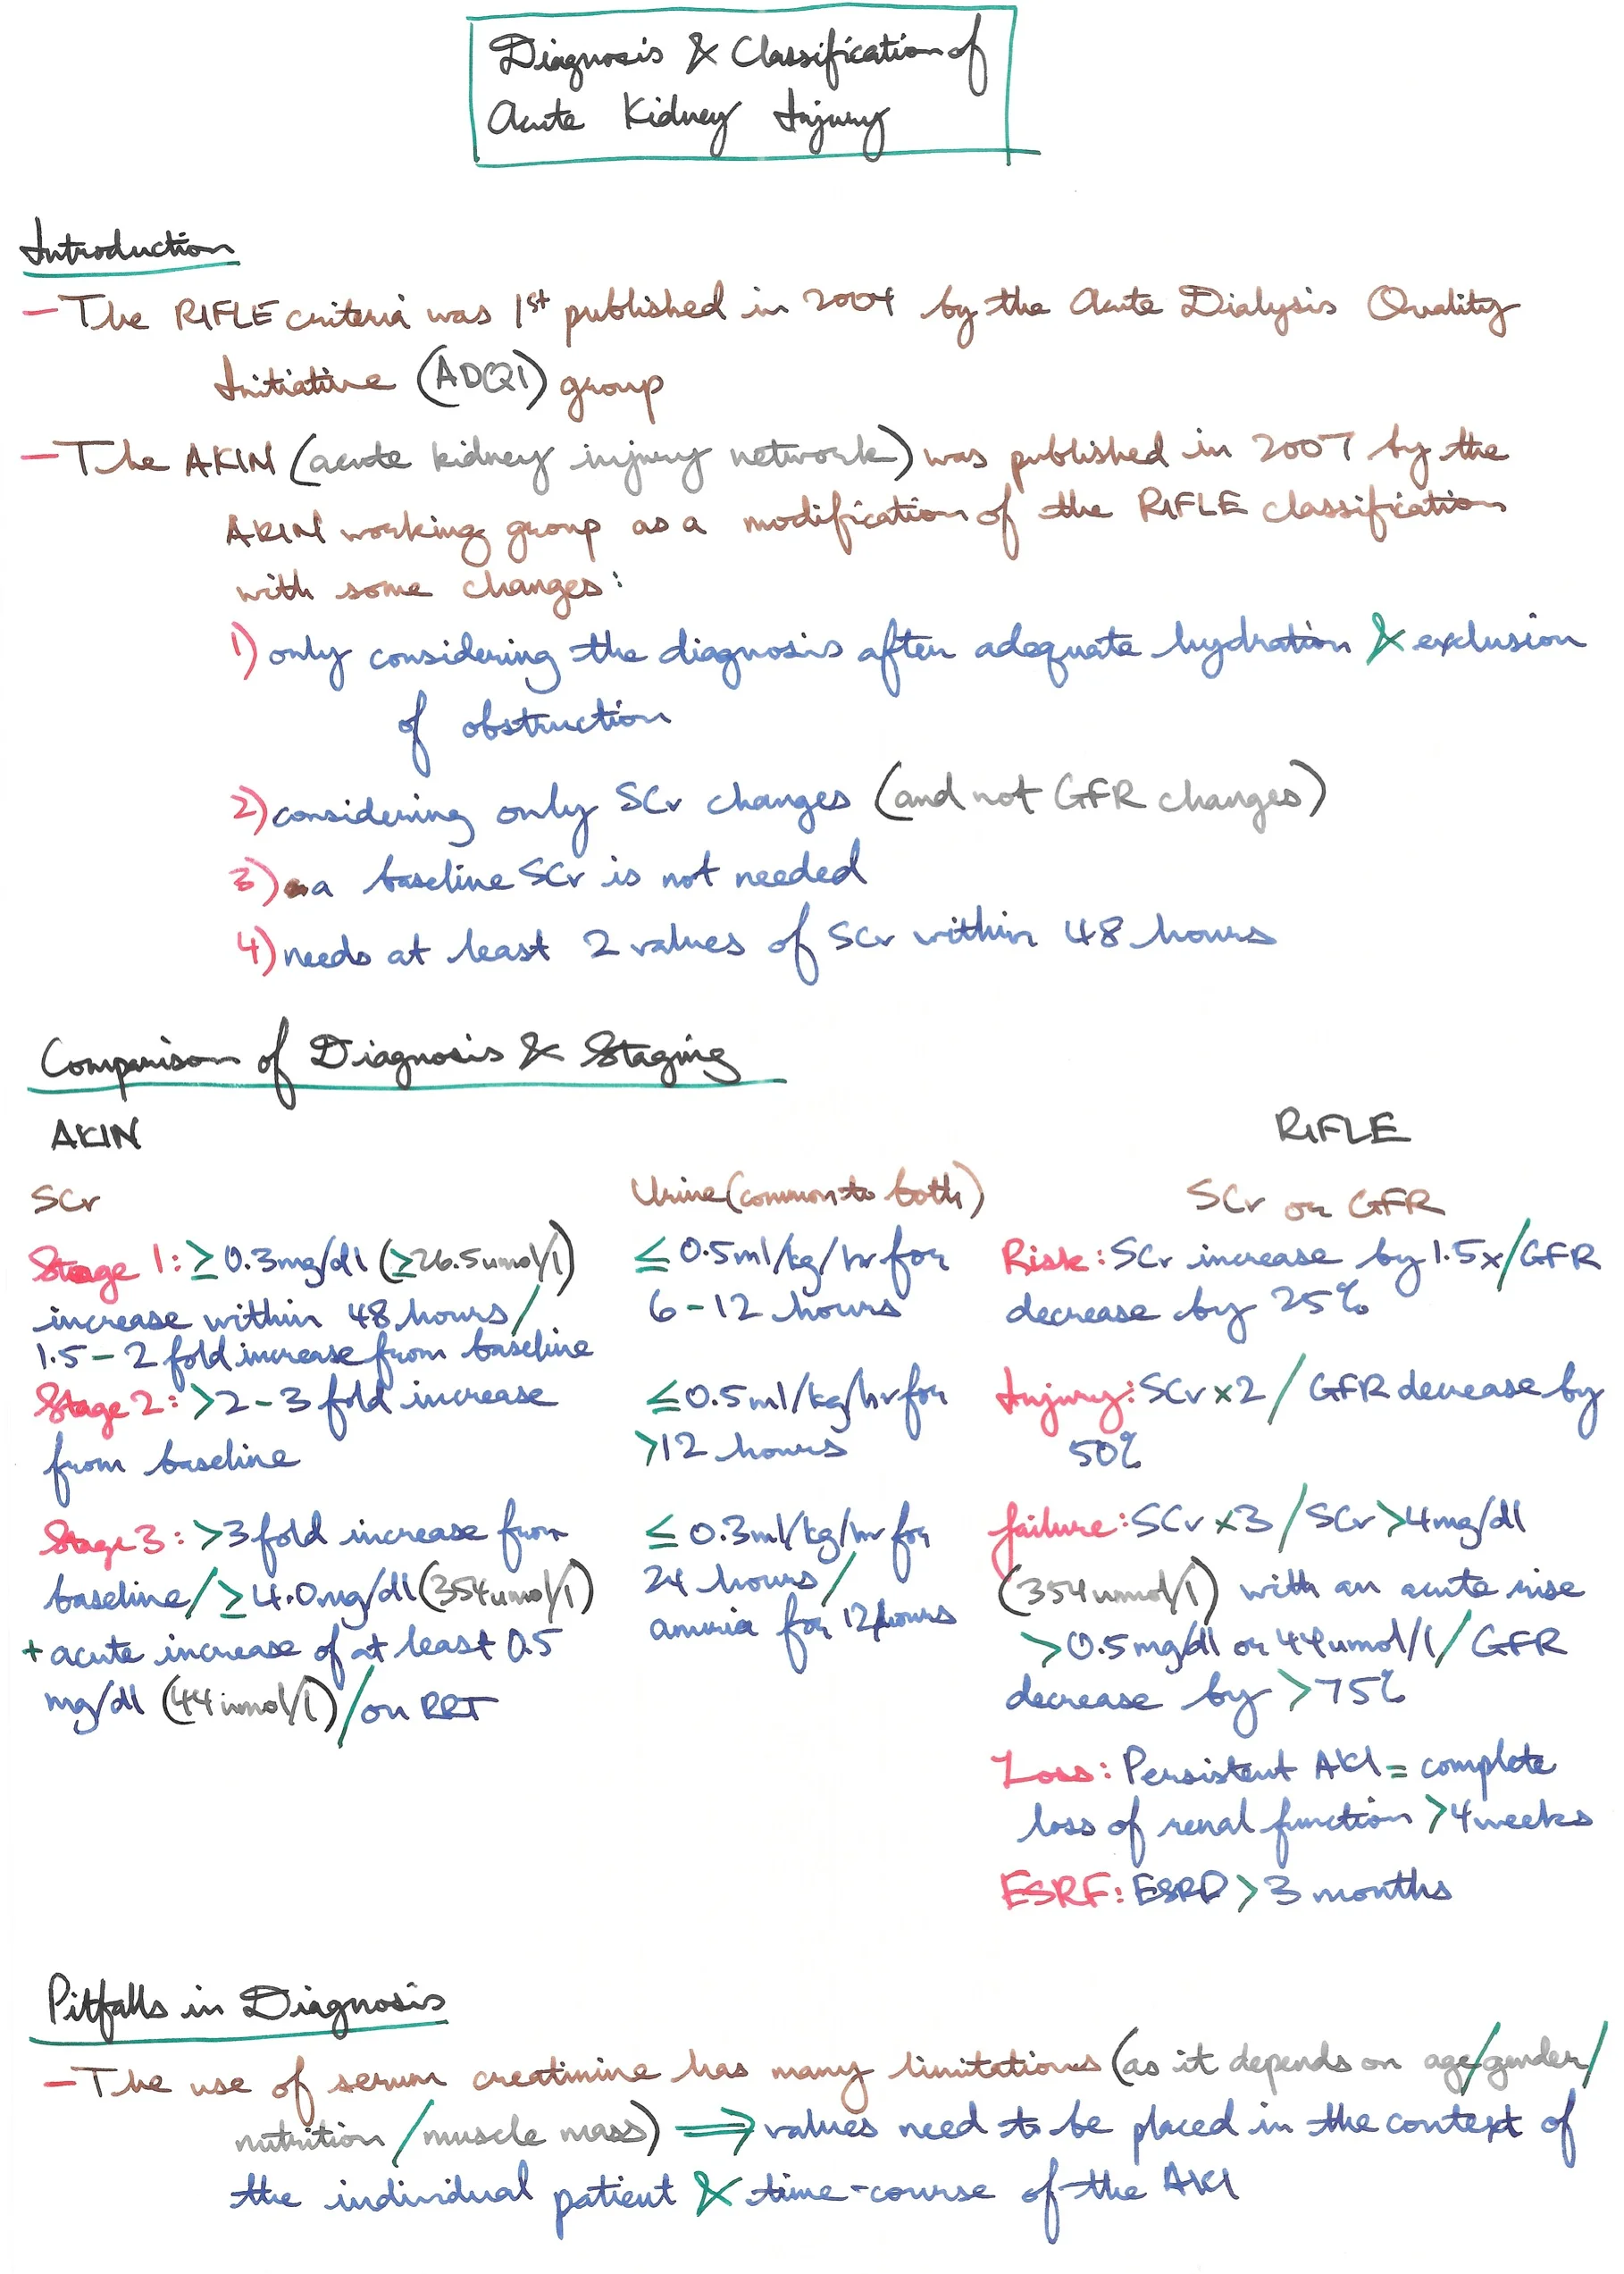 Diagnosis & Classification of
Acute Kidney Injury
Introduction
- The RIFLE criteria was 1st published in 2004 by the Acute Dialysis Quality
Initiative (ADQI) group
- The AKIN (acute kidney injury network) was published in 2007 by the
AKIN working group as a modification of the RIFLE classification
with some changes:
1) only considering the diagnosis after adequate hydration & exclusion
of obstruction
2) considering only SCr changes (and not GFR changes)
3) a baseline SCr is not needed
4) needs at least 2 values of SCr within 48 hours
Comparison of Diagnosis & Staging
AKIN
SCr
Stage 1: ≥0.3mg/dl (≥26.5umol/l)
increase within 48 hours/
1.5-2 fold increase from baseline
Stage 2: >2-3 fold increase
from baseline
Stage 3: >3 fold increase from
baseline/≥4.0mg/dl (354umol/l)
+ acute increase of at least 0.5
mg/dl (44umol/l)/on RRT
Urine (common to both)
≤0.5ml/kg/hr for
6-12 hours
≤0.5ml/kg/hr for
>12 hours
≤0.3ml/kg/hr for
24 hours/
anuria for 12 hours
RIFLE
SCr or GFR
Risk: SCr increase by 1.5x/GFR
decrease by 25%
Injury: SCr x2/GFR decrease by
50%
failure: SCr x3/SCr >4mg/dl
(354umol/l) with an acute rise
>0.5mg/dl or 44umol/l/GFR
decrease by >75%
Loss: Persistent AKI = complete
loss of renal function >4 weeks
ESRF: ESRD >3 months
Pitfalls in Diagnosis
- The use of serum creatinine has many limitations (as it depends on age/gender/
nutrition/muscle mass) ⟹ values need to be placed in the context of
the individual patient & time-course of the AKI